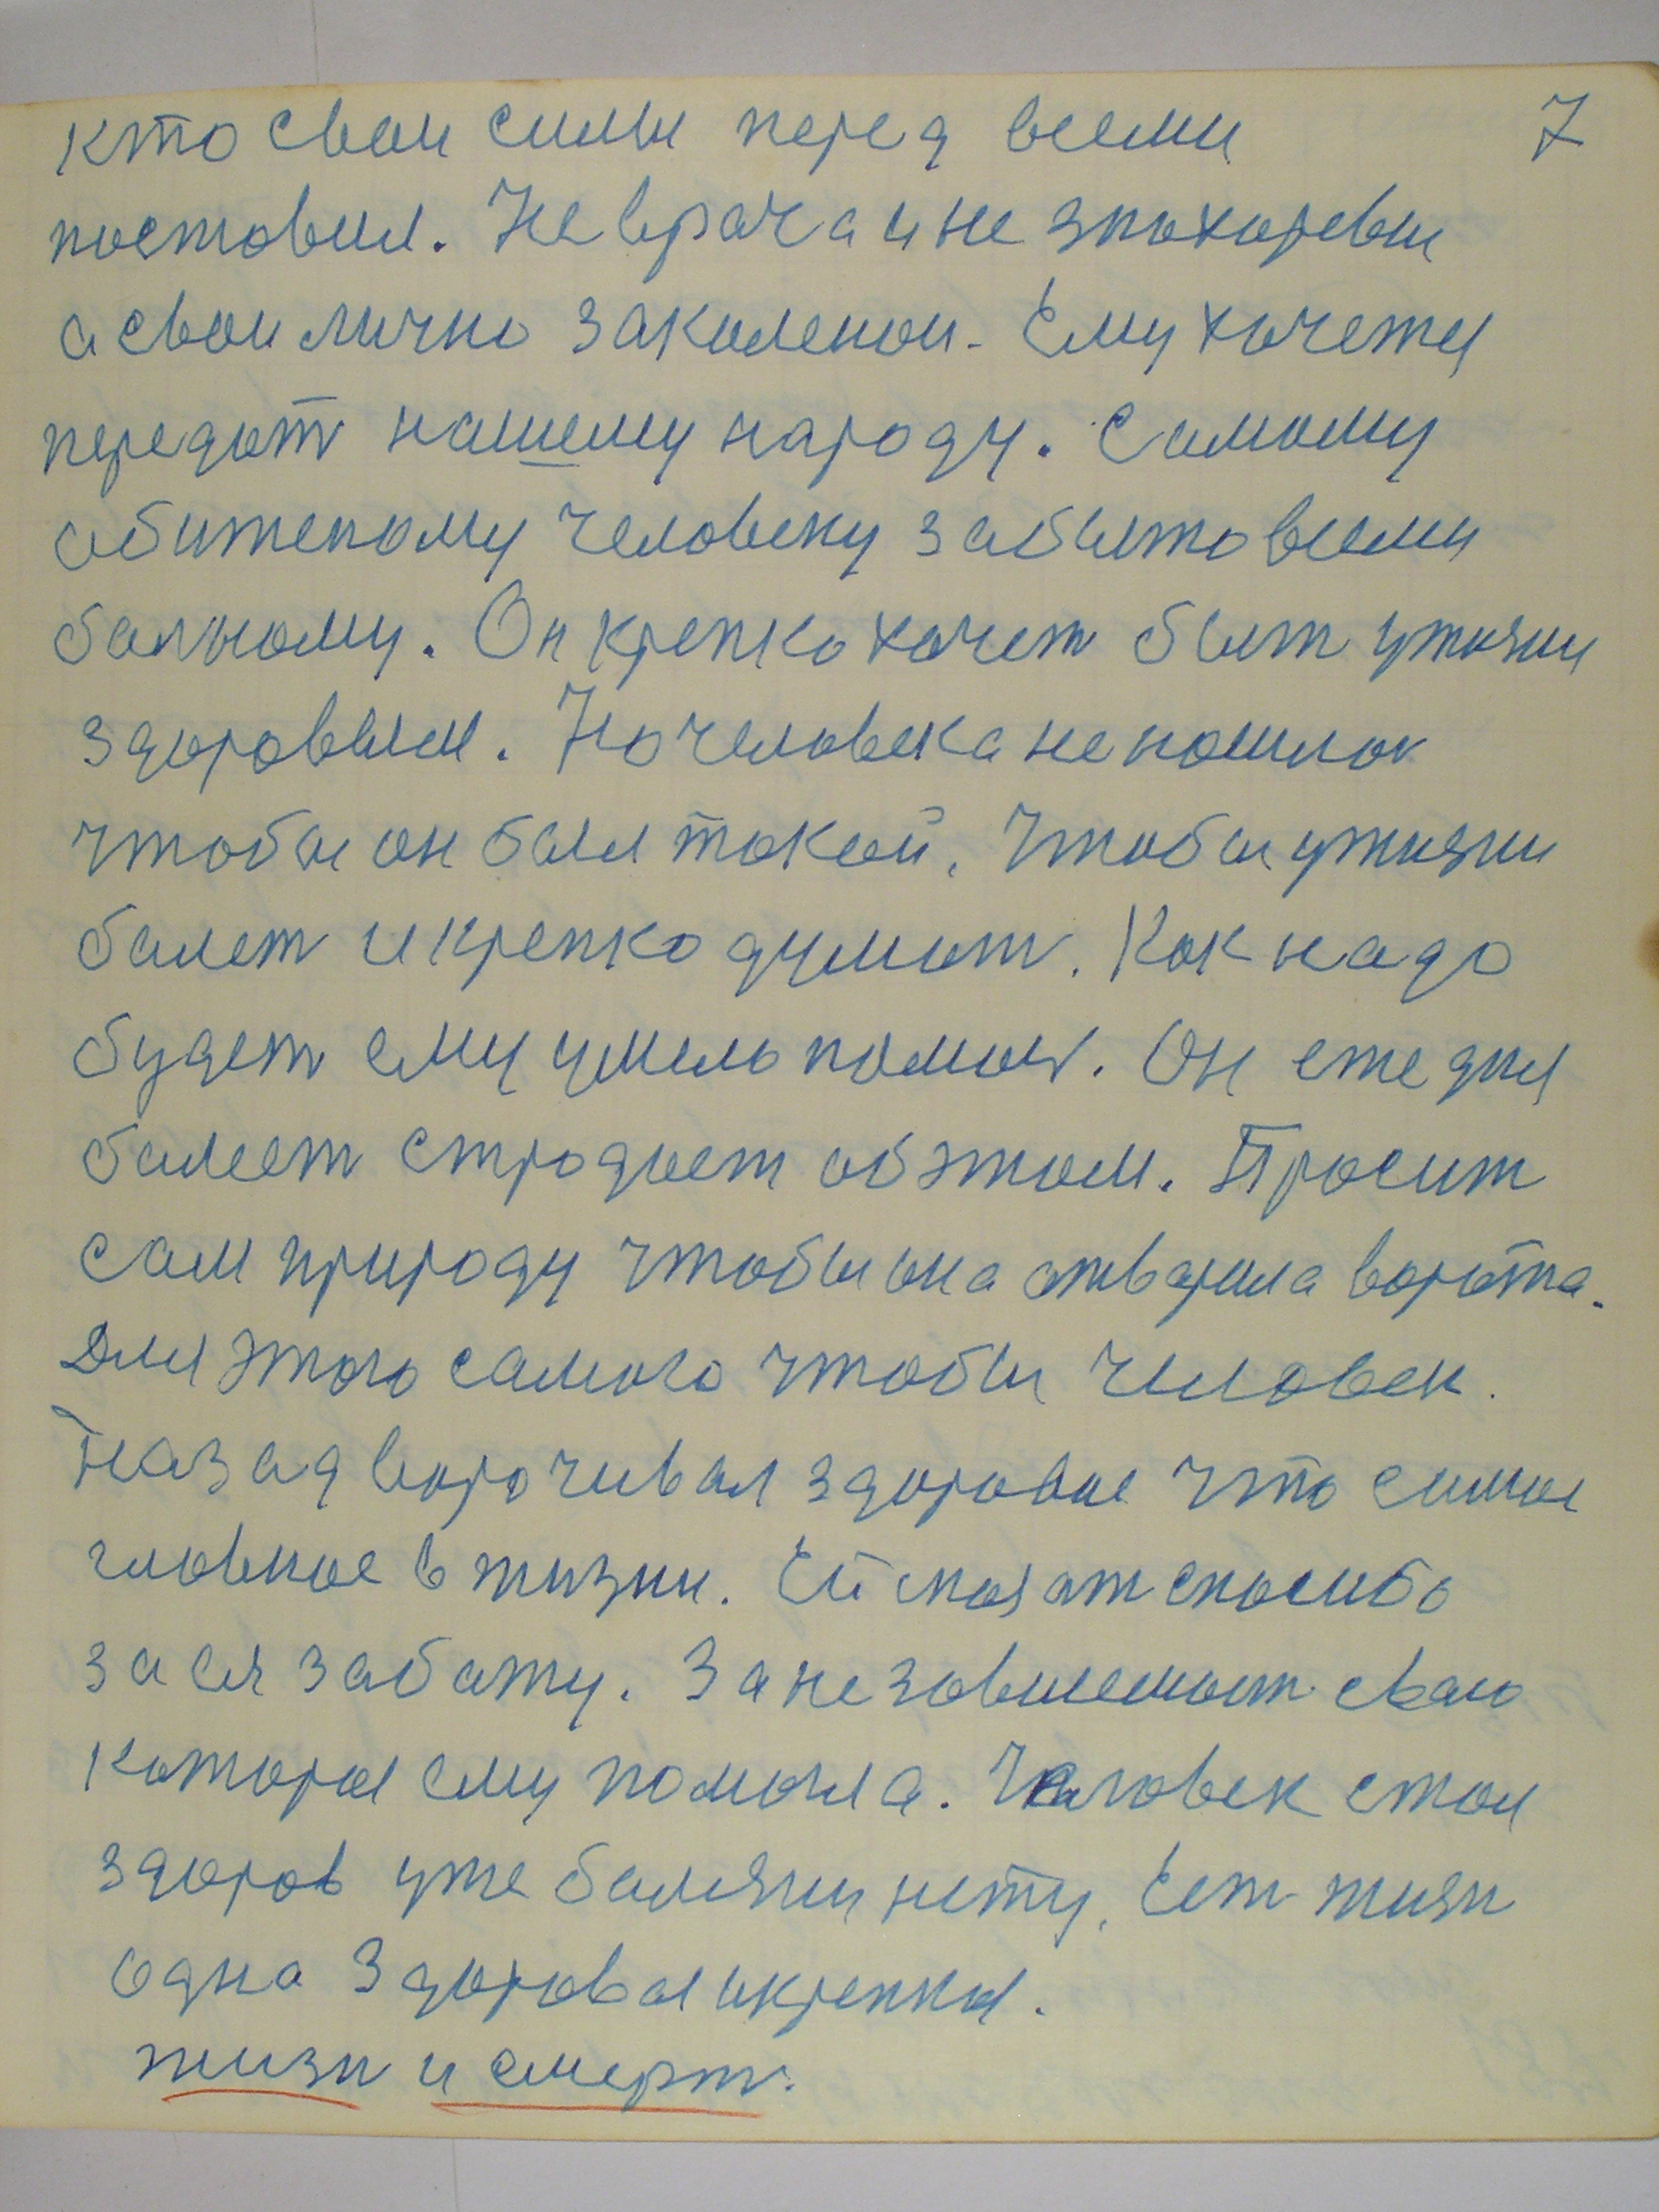 кто свои силы перед всеми 7
поставил. Не врача и не знахоревы
а свои лично закаленои. Ему хочетця
передат нашему народу. Самому
обиженому человеку забыто всеми
больному. Он крепко хочет быт ужизни
здоровым. Но человека не нашлос
чтобы он был такой. Чтобы ужизни
болет и крепко думат. Как надо
будет ему умело помоч. Он ежедня
болеет стродает об этом. Просит
сам природу чтобы она отварила ворота.
Для этого самого чтобы человек.
Назад ворочивал здоровие что самое
главное в жизни. Ей скажат спасибо
за ея заботу. За независемост сваю
которая ему помогла. Человек стал
здоров уже болезни нету. Ест жизн
одна здоровая и крепкая.
жизн и смерт.